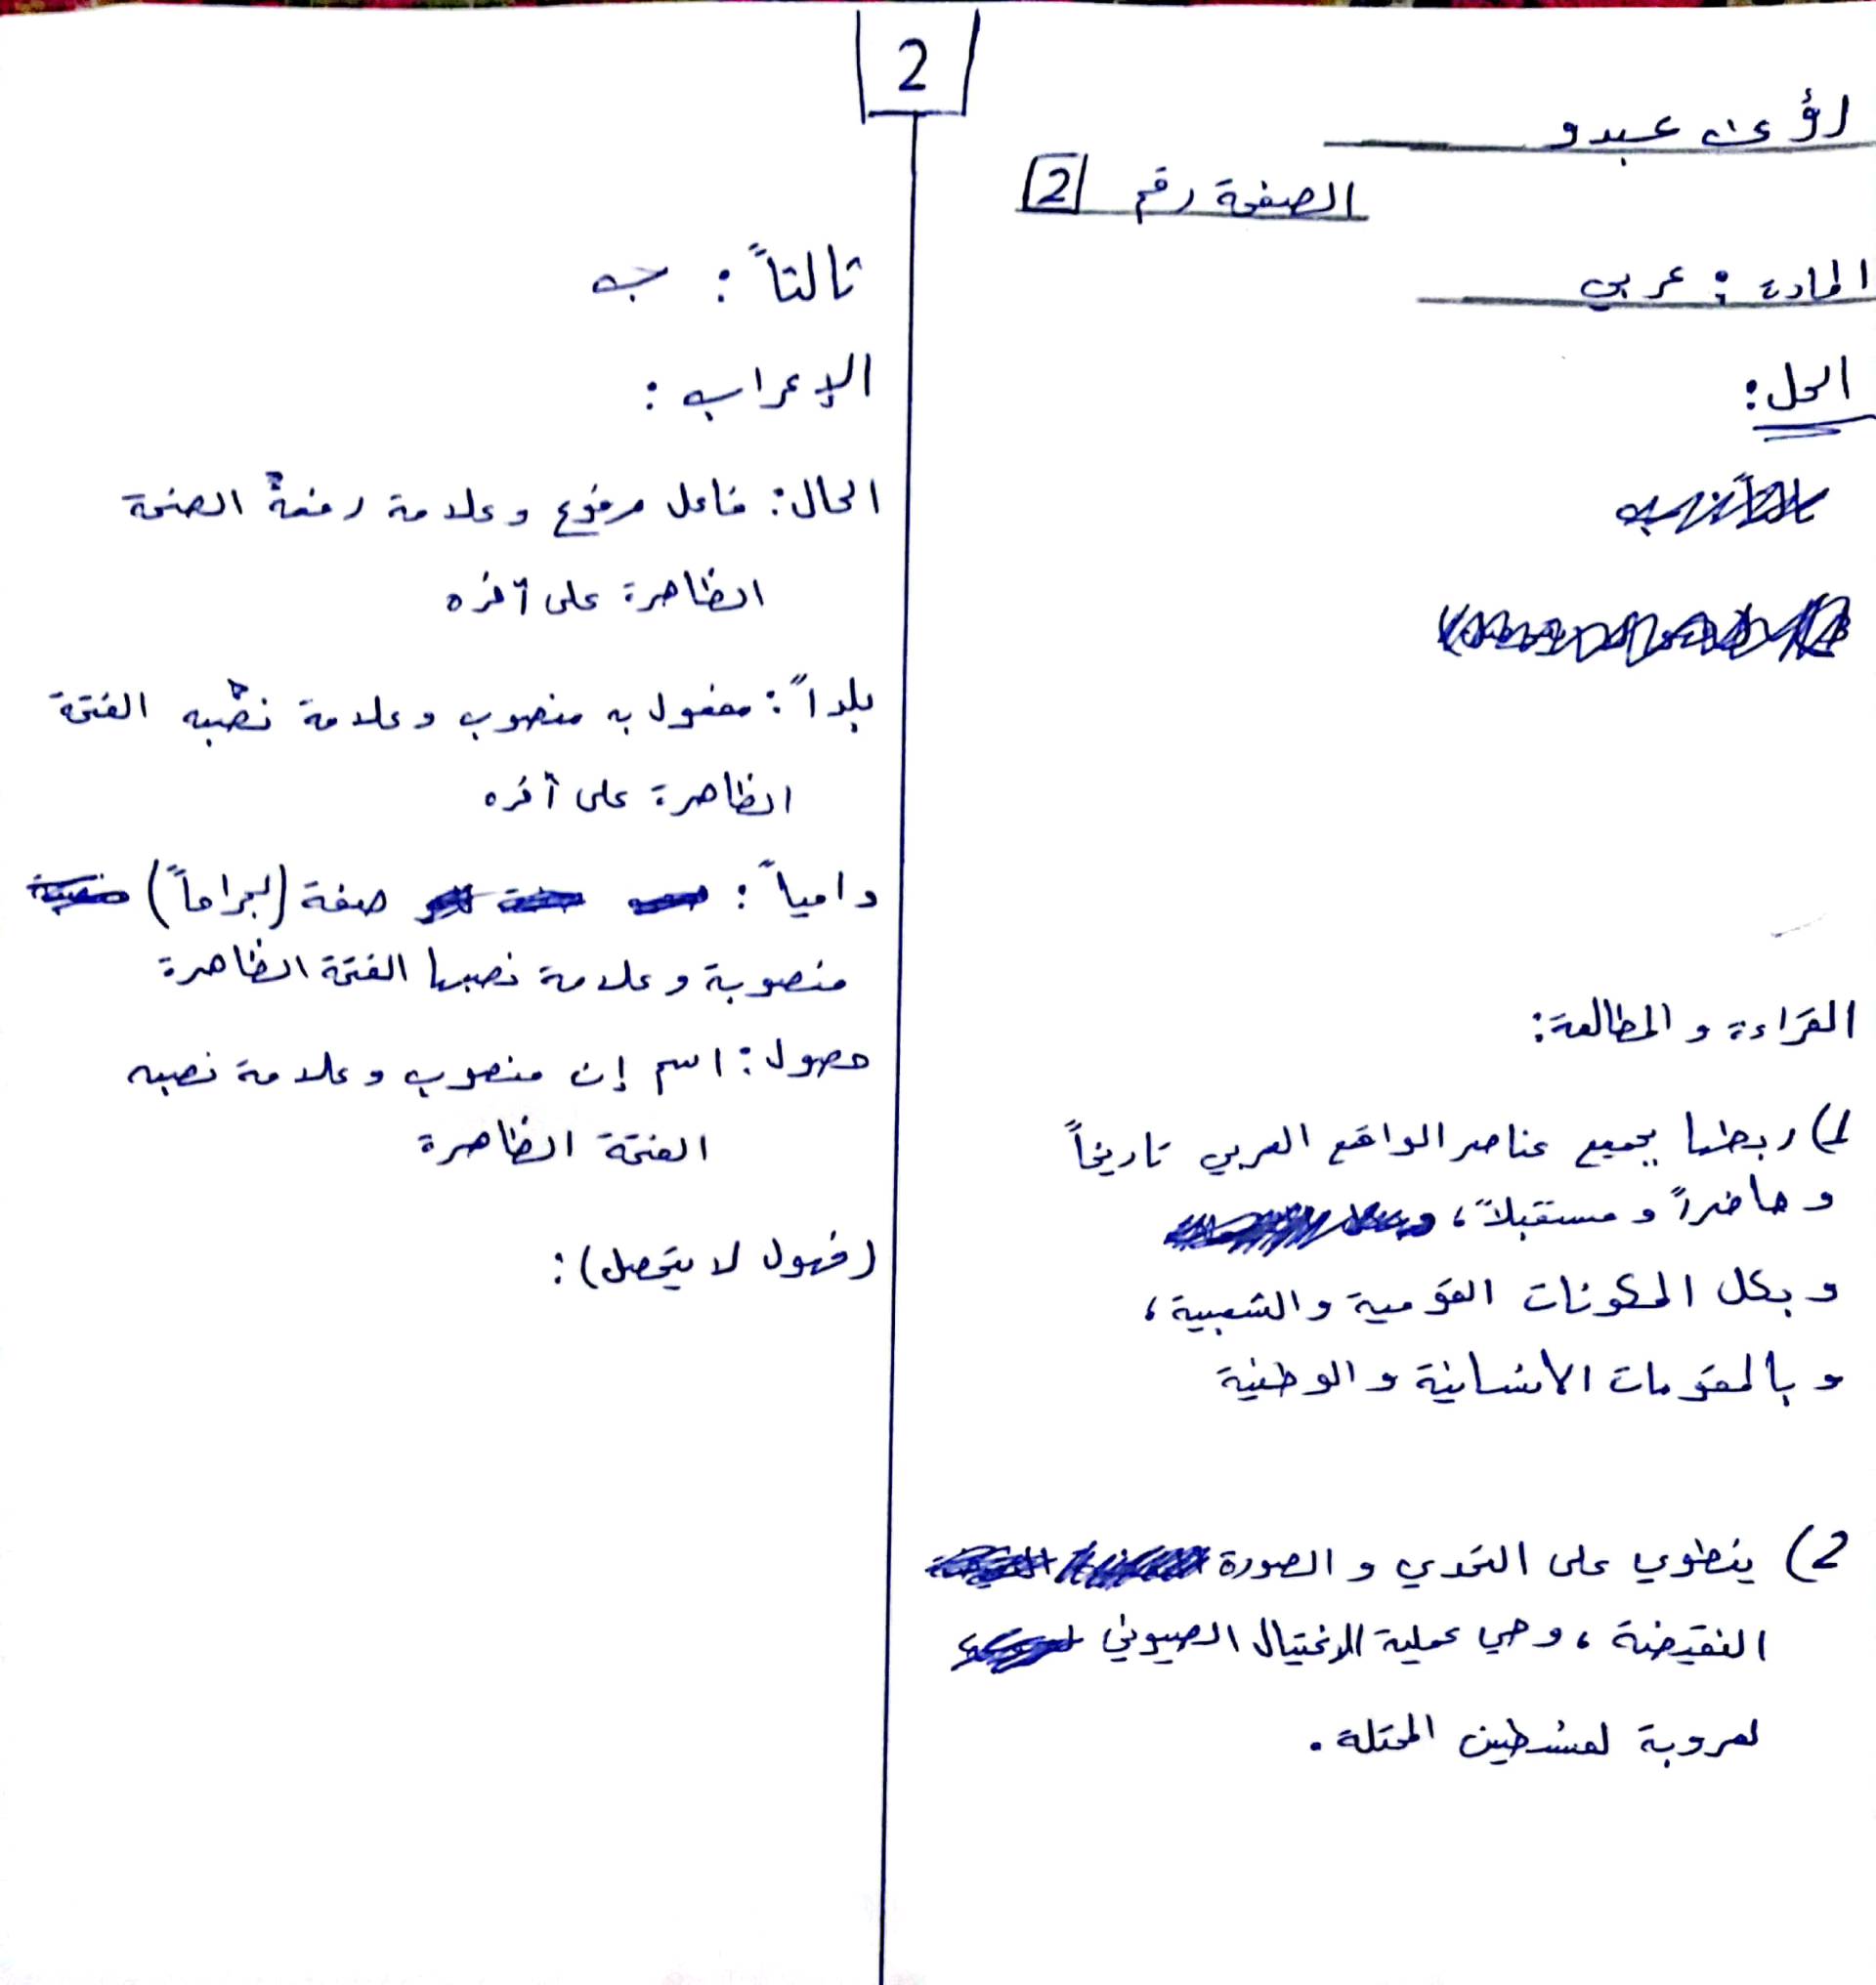 2
لؤي عبدو
الصفحة رقم 2
المادة : عربي
الحل :
القراءة و المطالعة :
1) ربطها بجميع عناصر الواقع العربي تاريخاً
و حاضراً و مستقبلاً ،
و بكل المكونات القومية و الشعبية ،
و بالمقومات الانسانية و الوطنية
2) ينطوي على التحدي و الصورة
النقيضة ، و هي عملية الاغتيال الصهيوني
لعروبة فلسطين المحتلة .
ثالثاً : ب
الإعراب :
الحال : فاعل مرفوع و علامة رفعه الضمة
الظاهرة على آخره
بلداً : مفعول به منصوب و علامة نصبه الفتحة
الظاهرة على آخره
دامياً : صفة (لجراحاً)
منصوبة و علامة نصبها الفتحة الظاهرة
حصول : اسم إن منصوب و علامة نصبه
الفتحة الظاهرة
لا يتحصل) :